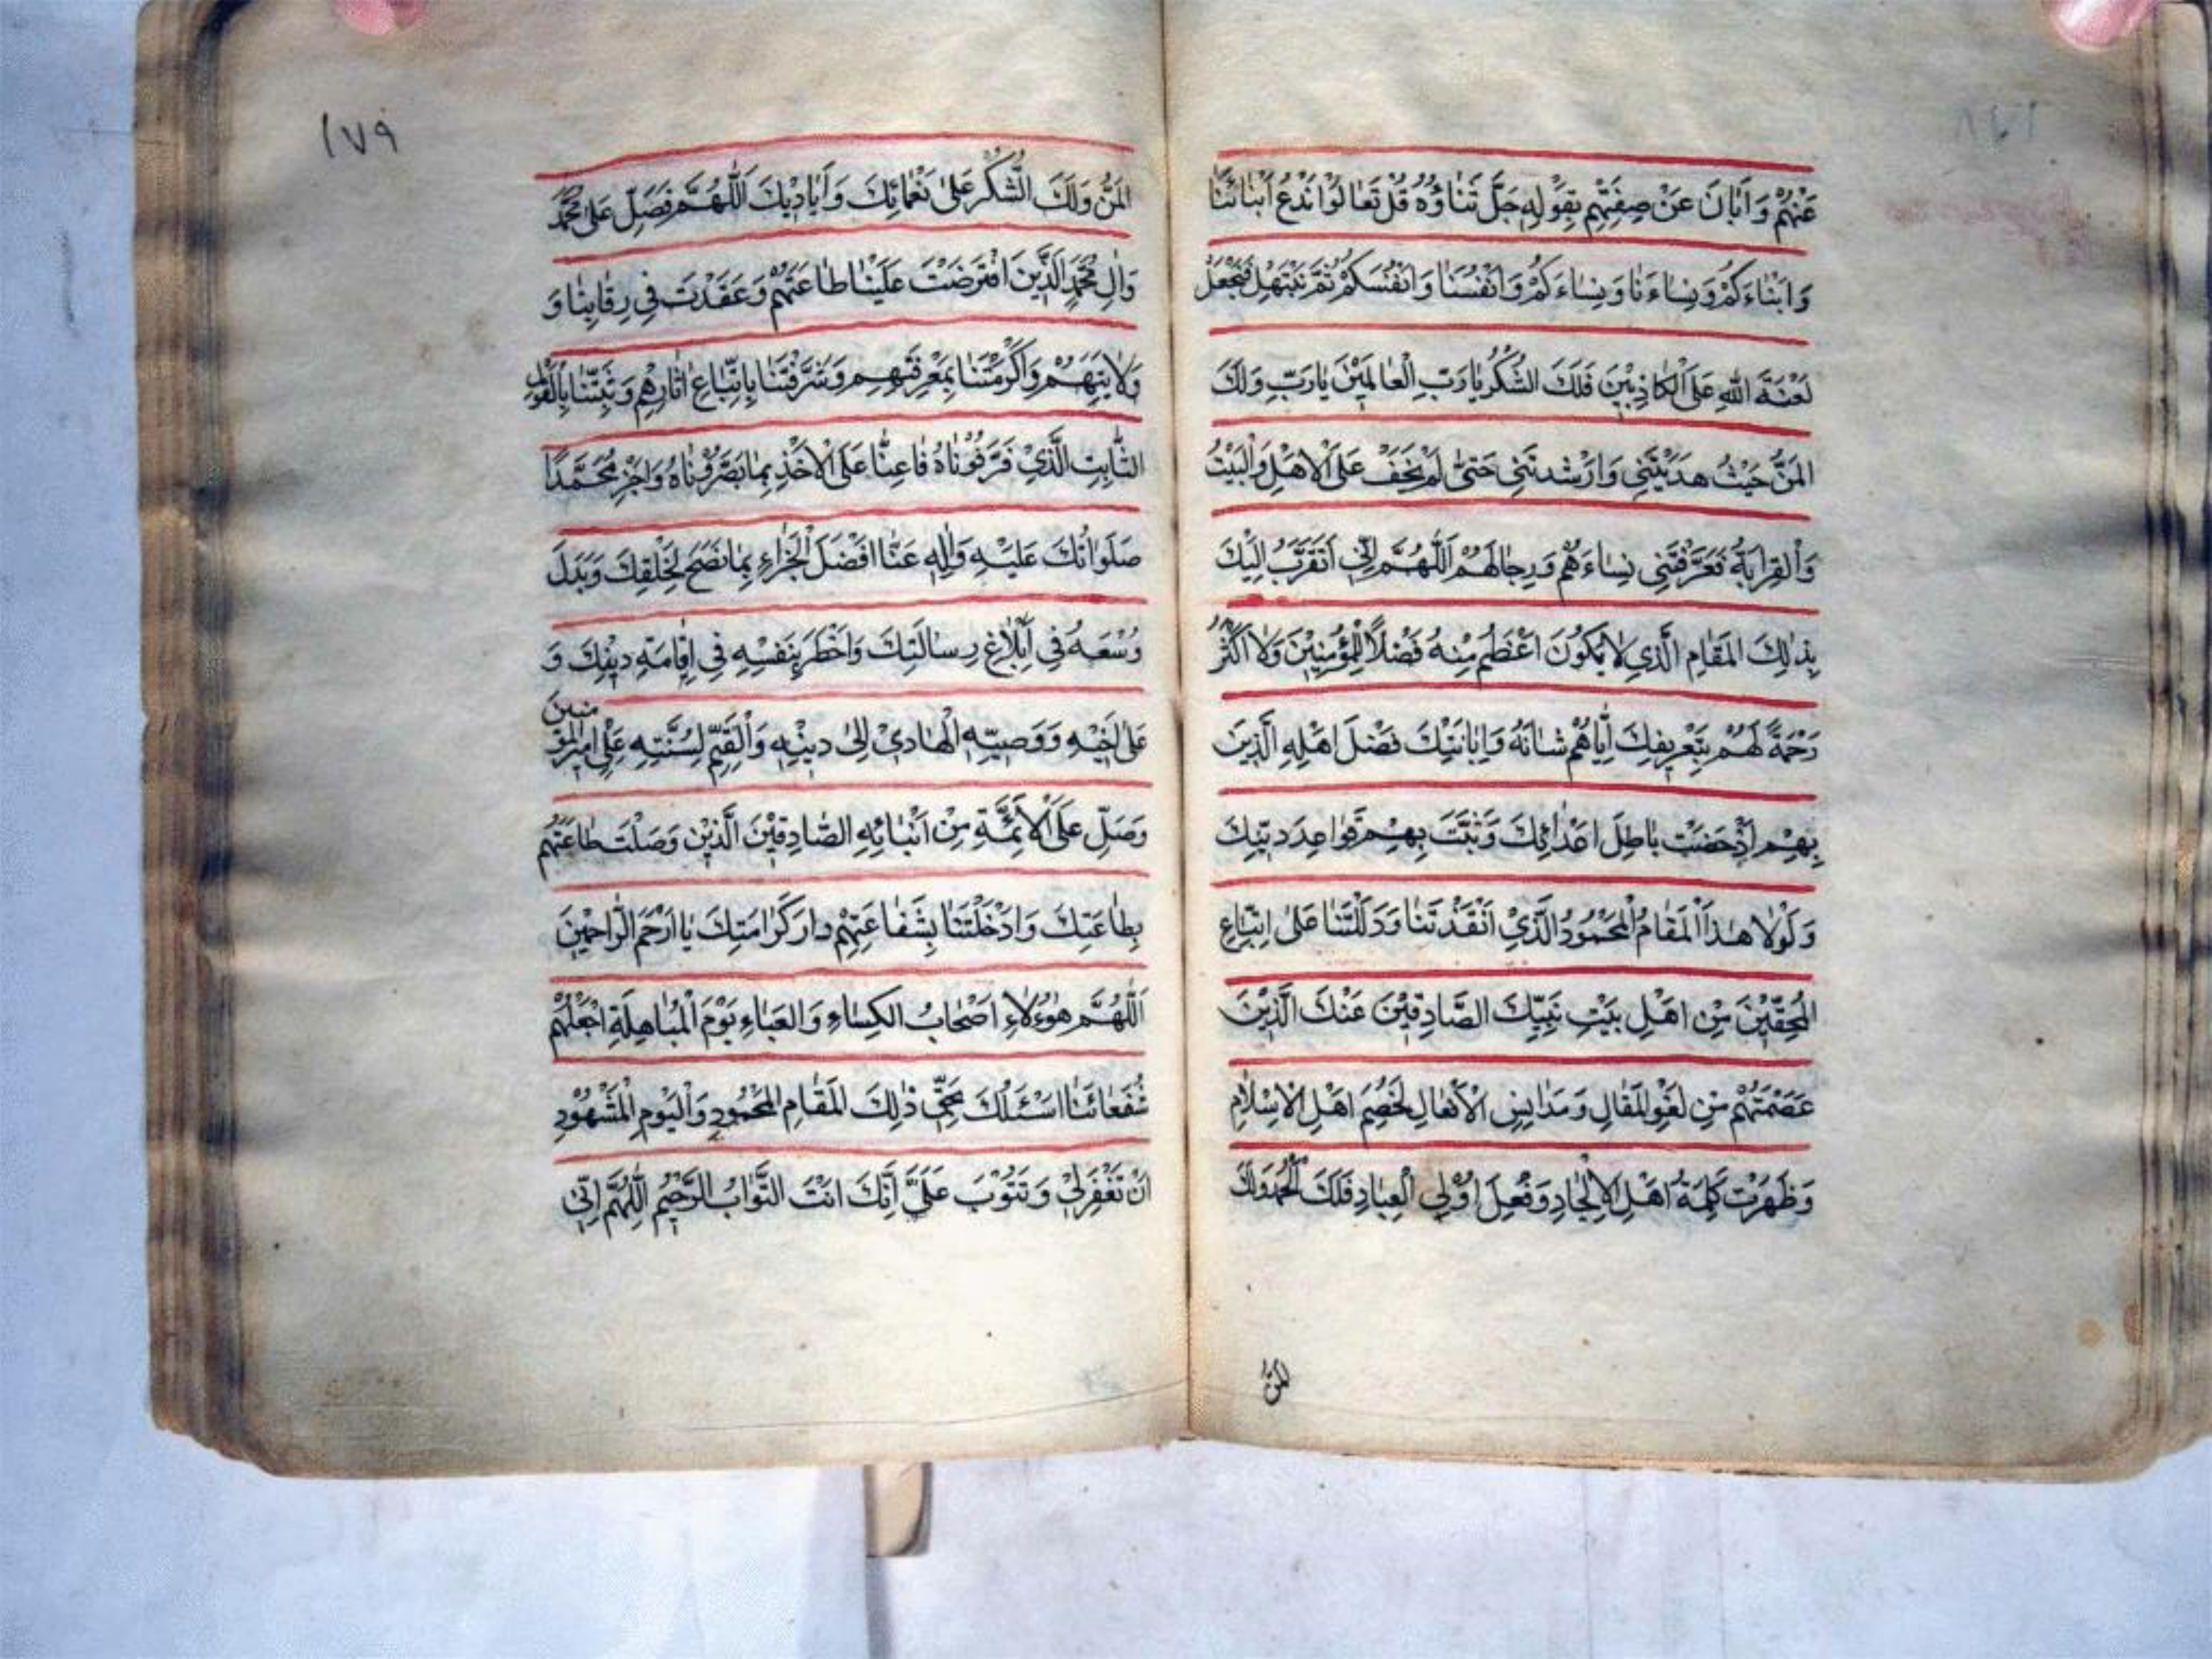 عَنْهُمْ وَاَبَانَ عَنْ صِفَتِهِمْ بِقَوْلِهِ جَلَّ ثَنَاؤُهُ قُلْ تَعَالَوْا نَدْعُ اَبْنَائَنَا
وَاَبْنَاءَكُمْ وَنِسَاءَنَا وَنِسَاءَكُمْ وَاَنْفُسَنَا وَاَنْفُسَكُمْ ثُمَّ نَبْتَهِلْ فَنَجْعَلْ
لَعْنَةَ اللهِ عَلَى الْكَاذِبِيْنَ فَلَكَ الشُّكْرُ يَا رَبَّ الْعَالَمِيْنَ يَا رَبِّ وَلَكَ
المَنُّ حَيْثُ هَدَيْتَنِي وَاَرْشَدتَنِي حَتّىٰ لَمْ يَخْفَ عَلَىَّ الْاَهْلُ وَالْبَيْتُ
وَالْقِرَابَةُ فَعَرَّفْتَنِي نِسَاءَهُمْ وَرِجَالَهُمْ اَللّهُمَّ اِنِّي اَتَقَرَّبُ اِلَيْكَ
بِذٰلِكَ المَقَامِ الَّذِي لَا يَكُونُ اَعْظَمُ مِنْهُ فَضْلًا لِلْمُؤْمِنِيْنَ وَلَا اَكْثَرُ
رَحْمَةً لَهُمْ بِتَعْرِيفِكَ اِيَّاهُمْ شَانَهُ وَاِبَانَتِكَ فَضْلَ اَهْلِهِ الَّذِينَ
بِهِمْ اَدْحَضْتَ بَاطِلَ اَعْدَائِكَ وَثَبَّتَ بِهِمْ قَوَاعِدَ دِيْنِكَ
وَلَوْلَا هٰذَا الْمَقَامُ الْمَحْمُودُ الَّذِيْ اَنْقَذْتَنَا وَدَلَلْتَنَا عَلىٰ اتِّبَاعِ
الْمُحِقِّيْنَ مِنْ اَهْلِ بَيْتِ نَبِيِّكَ الصَّادِقِيْنَ عَنْكَ الَّذِيْنَ
عَصَمْتَهُمْ مِنْ لَغْوِ المَقَالِ وَمَدَانِسِ الْاَفْعَالِ لَخُصِمَ اَهْلُ الْاِسْلَامِ
وَظَهَرَتْ كَلِمَةُ اَهْلِ الْاِلْحَادِ وَفِعْلُ اُوْلِي الْعِنَادِ فَلَكَ الْحَمْدُ وَلَكَ
المَنُّ
١٧٩
المَنُّ وَلَكَ الشُّكْرُ عَلىٰ نَعْمَائِكَ وَاَيَادِيْكَ اَللّٰهُمَّ فَصَلِّ عَلىٰ مُحَمَّدٍ
وَاٰلِ مُحَمَّدٍ الَّذِيْنَ افْتَرَضْتَ عَلَيْنَا طَاعَتَهُمْ وَعَقَدْتَ فِي رِقَابِنَا وَ
وَلَايَتَهُمْ وَاَكْرَمْتَنَا بِمَعْرِفَتِهِمْ وَشَرَّفْتَنَا بِاِتِّبَاعِ اٰثَارِهِمْ وَثَبَّتَّنَا بِالْقَوْلِ
الثَّابِتِ الَّذِيْ عَرَّفُوْنَاهُ فَاَعِنَّا عَلَى الْاَخْذِ بِمَا بَصَّرُوْنَاهُ وَاجْزِ مُحَمَّدًا
صَلَوَاتُكَ عَلَيْهِ وَاٰلِهِ عَنَّا اَفْضَلَ الْجَزَاءِ بِمَا نَصَحَ لِخَلْقِكَ وَبَذَلَ
وُسْعَهُ فِي اِبْلَاغِ رِسَالَتِكَ وَاَخْطَرَ بِنَفْسِهِ فِي اِقَامَةِ دِيْنِكَ وَ
عَلىٰ اَخِيْهِ وَوَصِيِّهِ الْهَادِيْ اِلىٰ دِيْنِهِ وَالْقَيِّمِ لِسُنَّتِهِ عَلِيٍّ اَمِيْرِ المُؤْمنين
وَصَلِّ عَلَى الْاَئِمَّةِ مِنْ اَبْنَائِهِ الصَّادِقِيْنَ الَّذِيْنَ وَصَلْتَ طَاعَتَهُمْ
بِطَاعَتِكَ وَاَدْخَلْتَنَا بِشَفَاعَتِهِمْ دَارَ كَرَامَتِكَ يَا اَرْحَمَ الرَّاحِمِيْنَ
اَللّٰهُمَّ هٰؤُلَاءِ اَصْحَابُ الكِسَاءِ وَالعَبَاءِ يَوْمَ الْمُبَاهِلَةِ اجْعَلْهُمْ
شُفَعَائَنَا اَسْئَلُكَ بِحَقِّ ذٰلِكَ المَقَامِ الْمَحْمُودِ وَالْيَوْمِ الْمَشْهُوْدِ
اَنْ تَغْفِرَ لِيْ وَتَتُوْبَ عَلَيَّ اِنَّكَ اَنْتَ التَّوَّابُ الرَّحِيْمُ اَللّٰهُمَّ اِنِّي